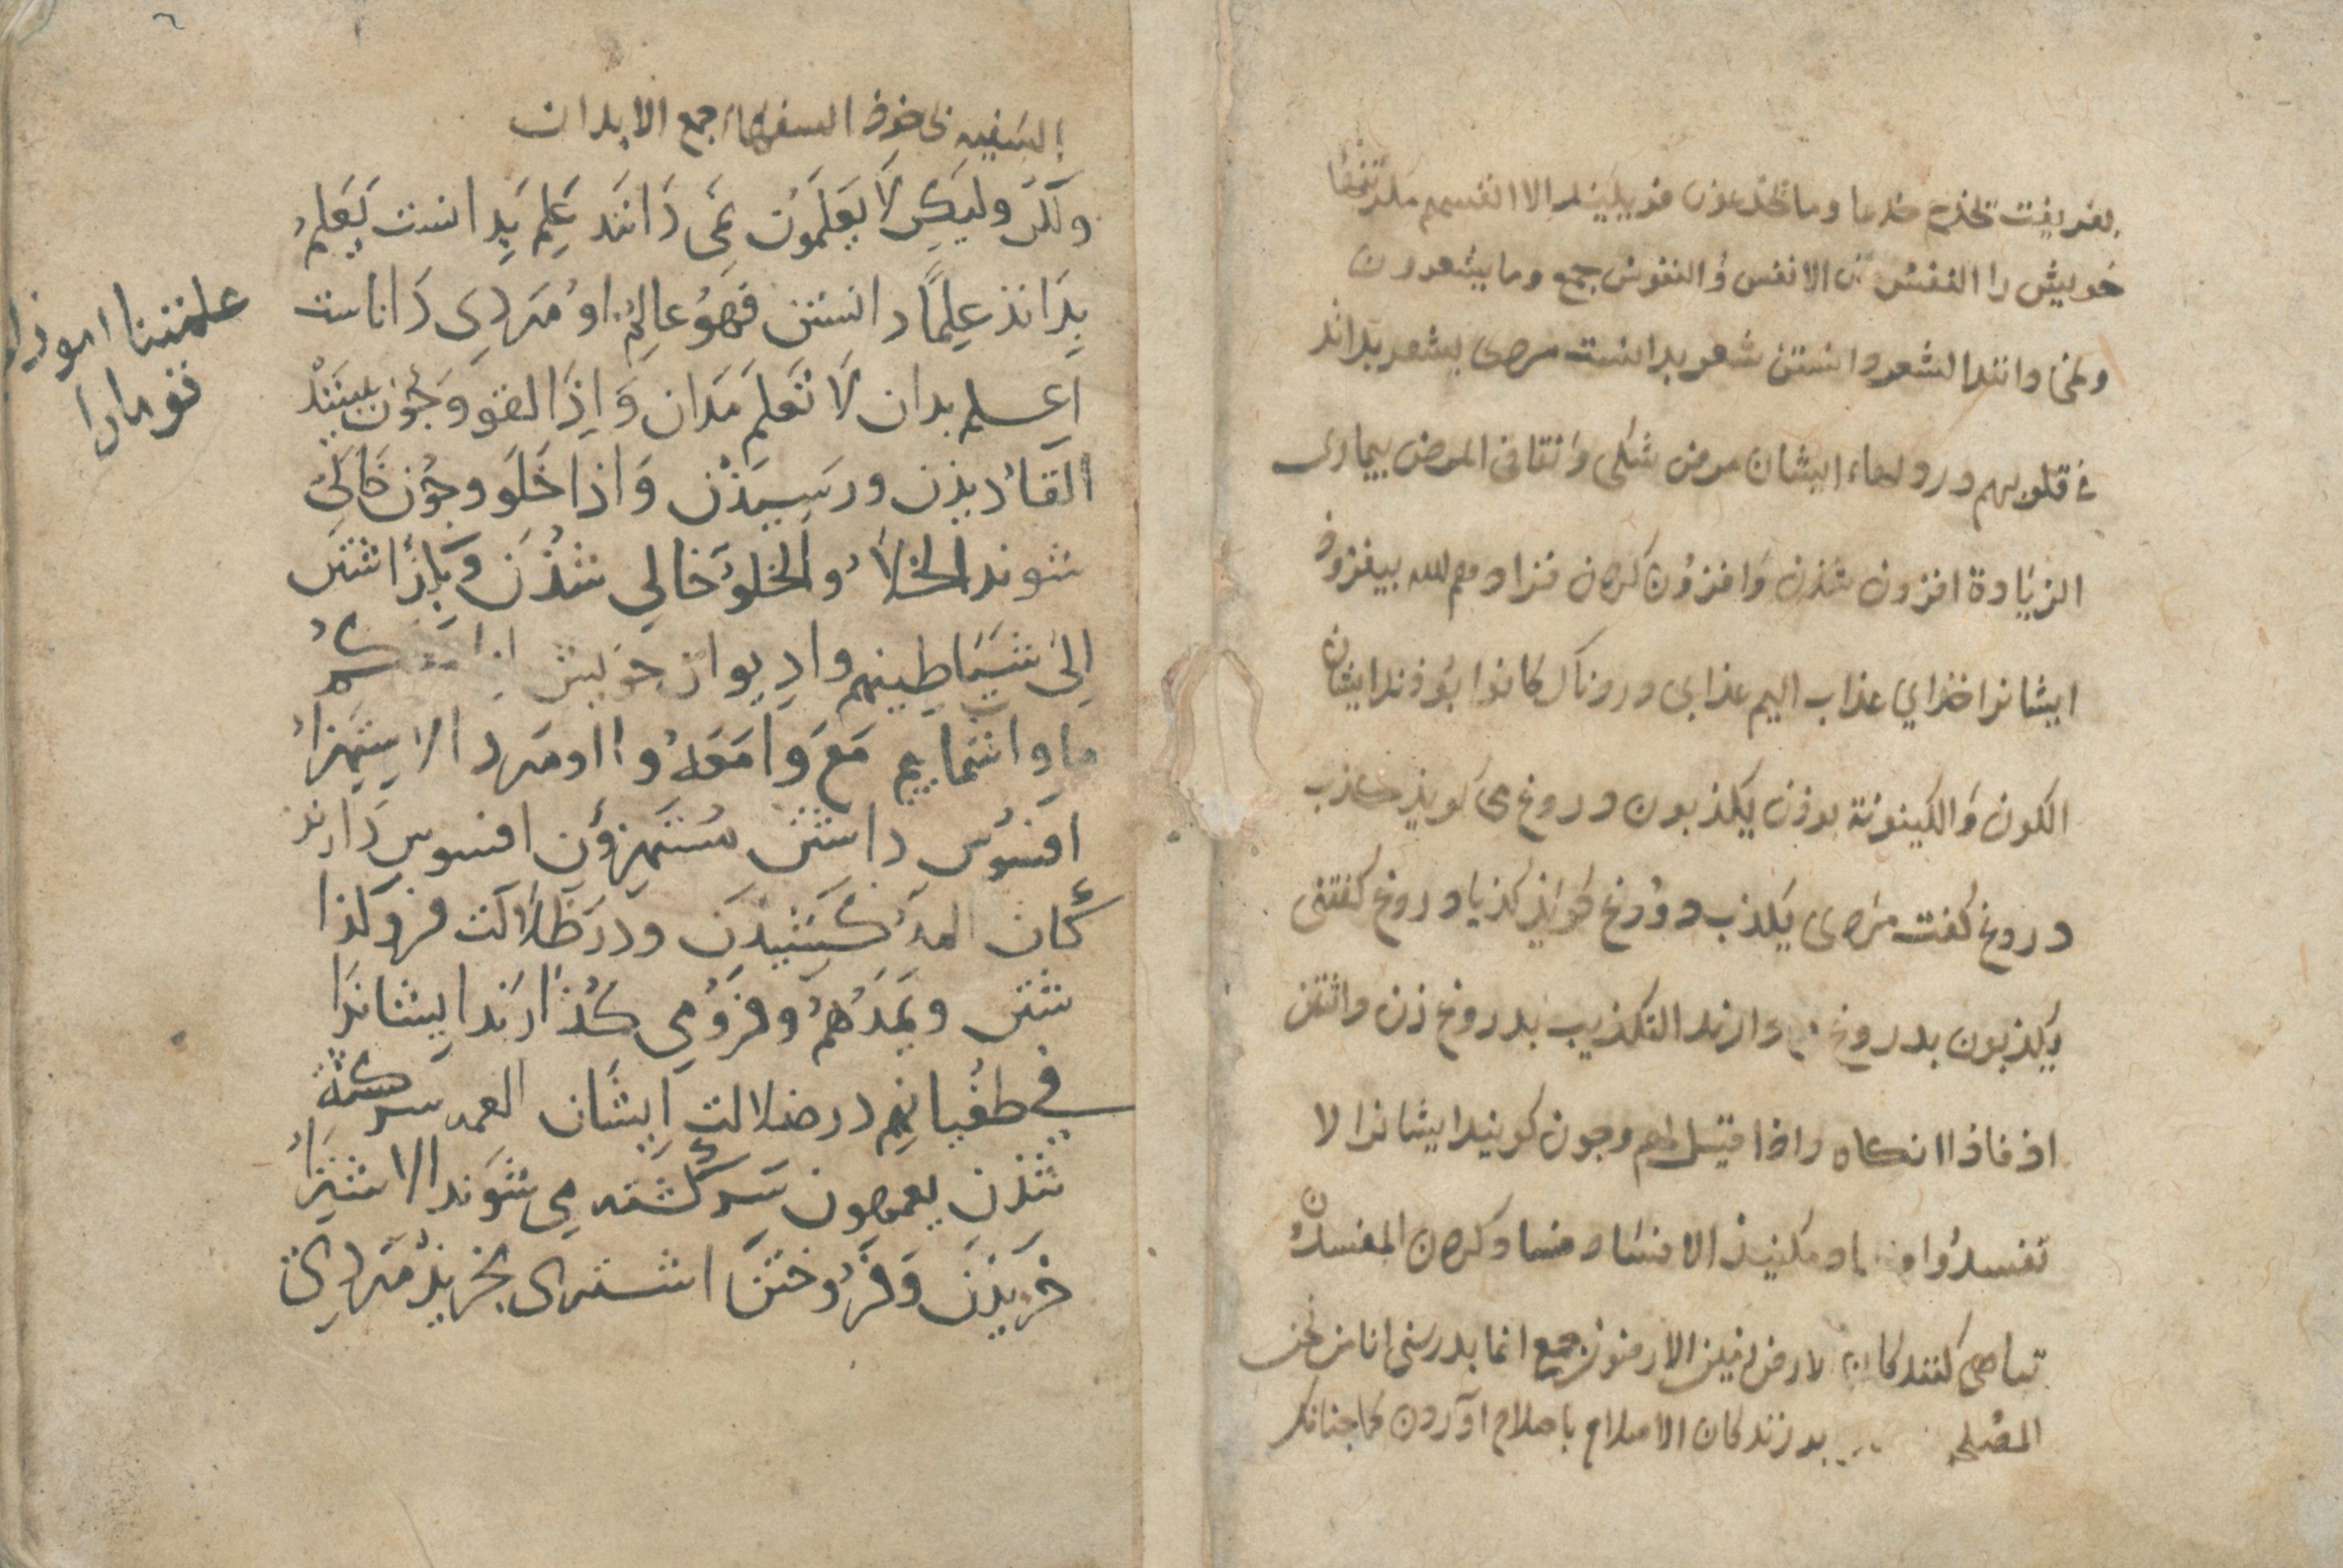 بفریفت یخدع خدعا وما یخدعون فریبند الا انفسهم مکر تنهٔا
خویش را النفس تن الانفس وُ النفوس جمع وما یشعرون
ونمی دانند الشعر دانستن شعر بدانست مردی یشعر بداند
فی قلوبهم در دلهاء ایشان مرض شکی وَ نفاق المرض بیماری
الزیَادة افزون شذن وَ افزوُن کردن فزادهم الله بیفزوذ
ایشانرا خذاي عذاب الیم عذابی دردناک کانوا بوُذند ایشان
الکون وَ الکینونة بوذن یکذبون دروغ می کویذ کذب
دروغ کفت مردی یکذب دوُروغ کویذ کذبا دروغ کفتنی
یکذبون بدروغ می دارند التکذیب بدروغ زن داشتن
اذ فاذا انکاه واذا قیل لهم وجون کویند ایشانرا لا
تفسدوُا فساد مکنیذ الافسَاد فساد کردن المفسدُ
تباهی کنندکان الارض زمین الارضون جمع انما بدرستی انا من نحن
المصُلح کان الاصلاح باصلاح اوَردن کما جنانک
السَفیه السفهاء جمع الابدان
ولکن ولیکِن لَا یَعلَمُونَ نمَی دَانَند عَلِمَ بِدانست یَعلَمُ
بِدَانذ عِلمًا دانستن فَهوُ عالِمٌ اوُ مَردِی دَاناست
اِعلم بدان لَا تَعلَم مَدان وَ اِذَا لقو وَ جُون بینَند
اللّقاءُ دیذن ورَسِیذَن وَ اذا خَلَو وجوُن خَالیُ
شوند الخلاءُ والخلوُ خالي شذُن وَ بازدَاشتن
الِیٰ شَیَاطِینهم وا دِیوان خوَیش انا معکمُ
ما وا شمایم مَعَ وَا مَعَهُ وا او مَرد الاِستِهزاءُ
افسُوس داشتن مُستَهزؤن افسوس دَارند
کَٔان المدُ کشیذن ودر ضَلَالَت فروکذا
شتن ویمَدُهمُ وفروُ می کذُارَند ایشانرَا
في طغُیانهِم در ضلالتِ اِیشَان العمه سرکَشته
شذن یعمهون سَرکَشته می شوَند الاشتِراءُ
خریذَن وَ فرُوختن اشتری بخریذ مَردِی
علمتنا اموذی
تو مارا